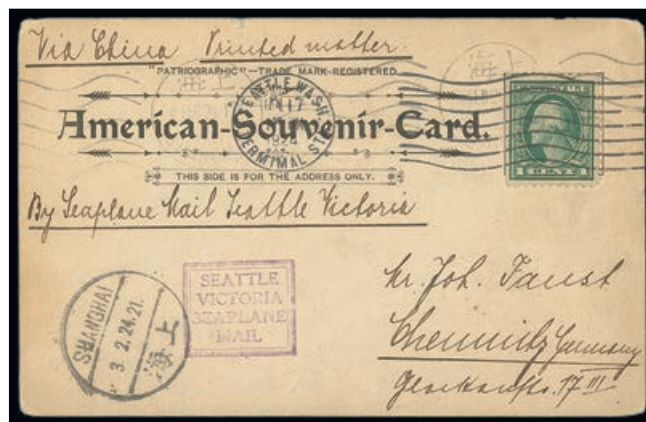 Via China Printed matter.
"PATRIOGRAPHIC"—TRADE MARK REGISTERED.
SEATTLE WASH.
JAN 17
1924
TERMINAL STA.
American-Souvenir-Card.
THIS SIDE IS FOR THE ADDRESS ONLY.
By Seaplane Mail Seattle Victoria
SEATTLE
VICTORIA
SEAPLANE
MAIL
SHANGHAI
3. 2. 24. 21.
上海
Mr. Joh. Faust
Chemnitz Germany
17 III